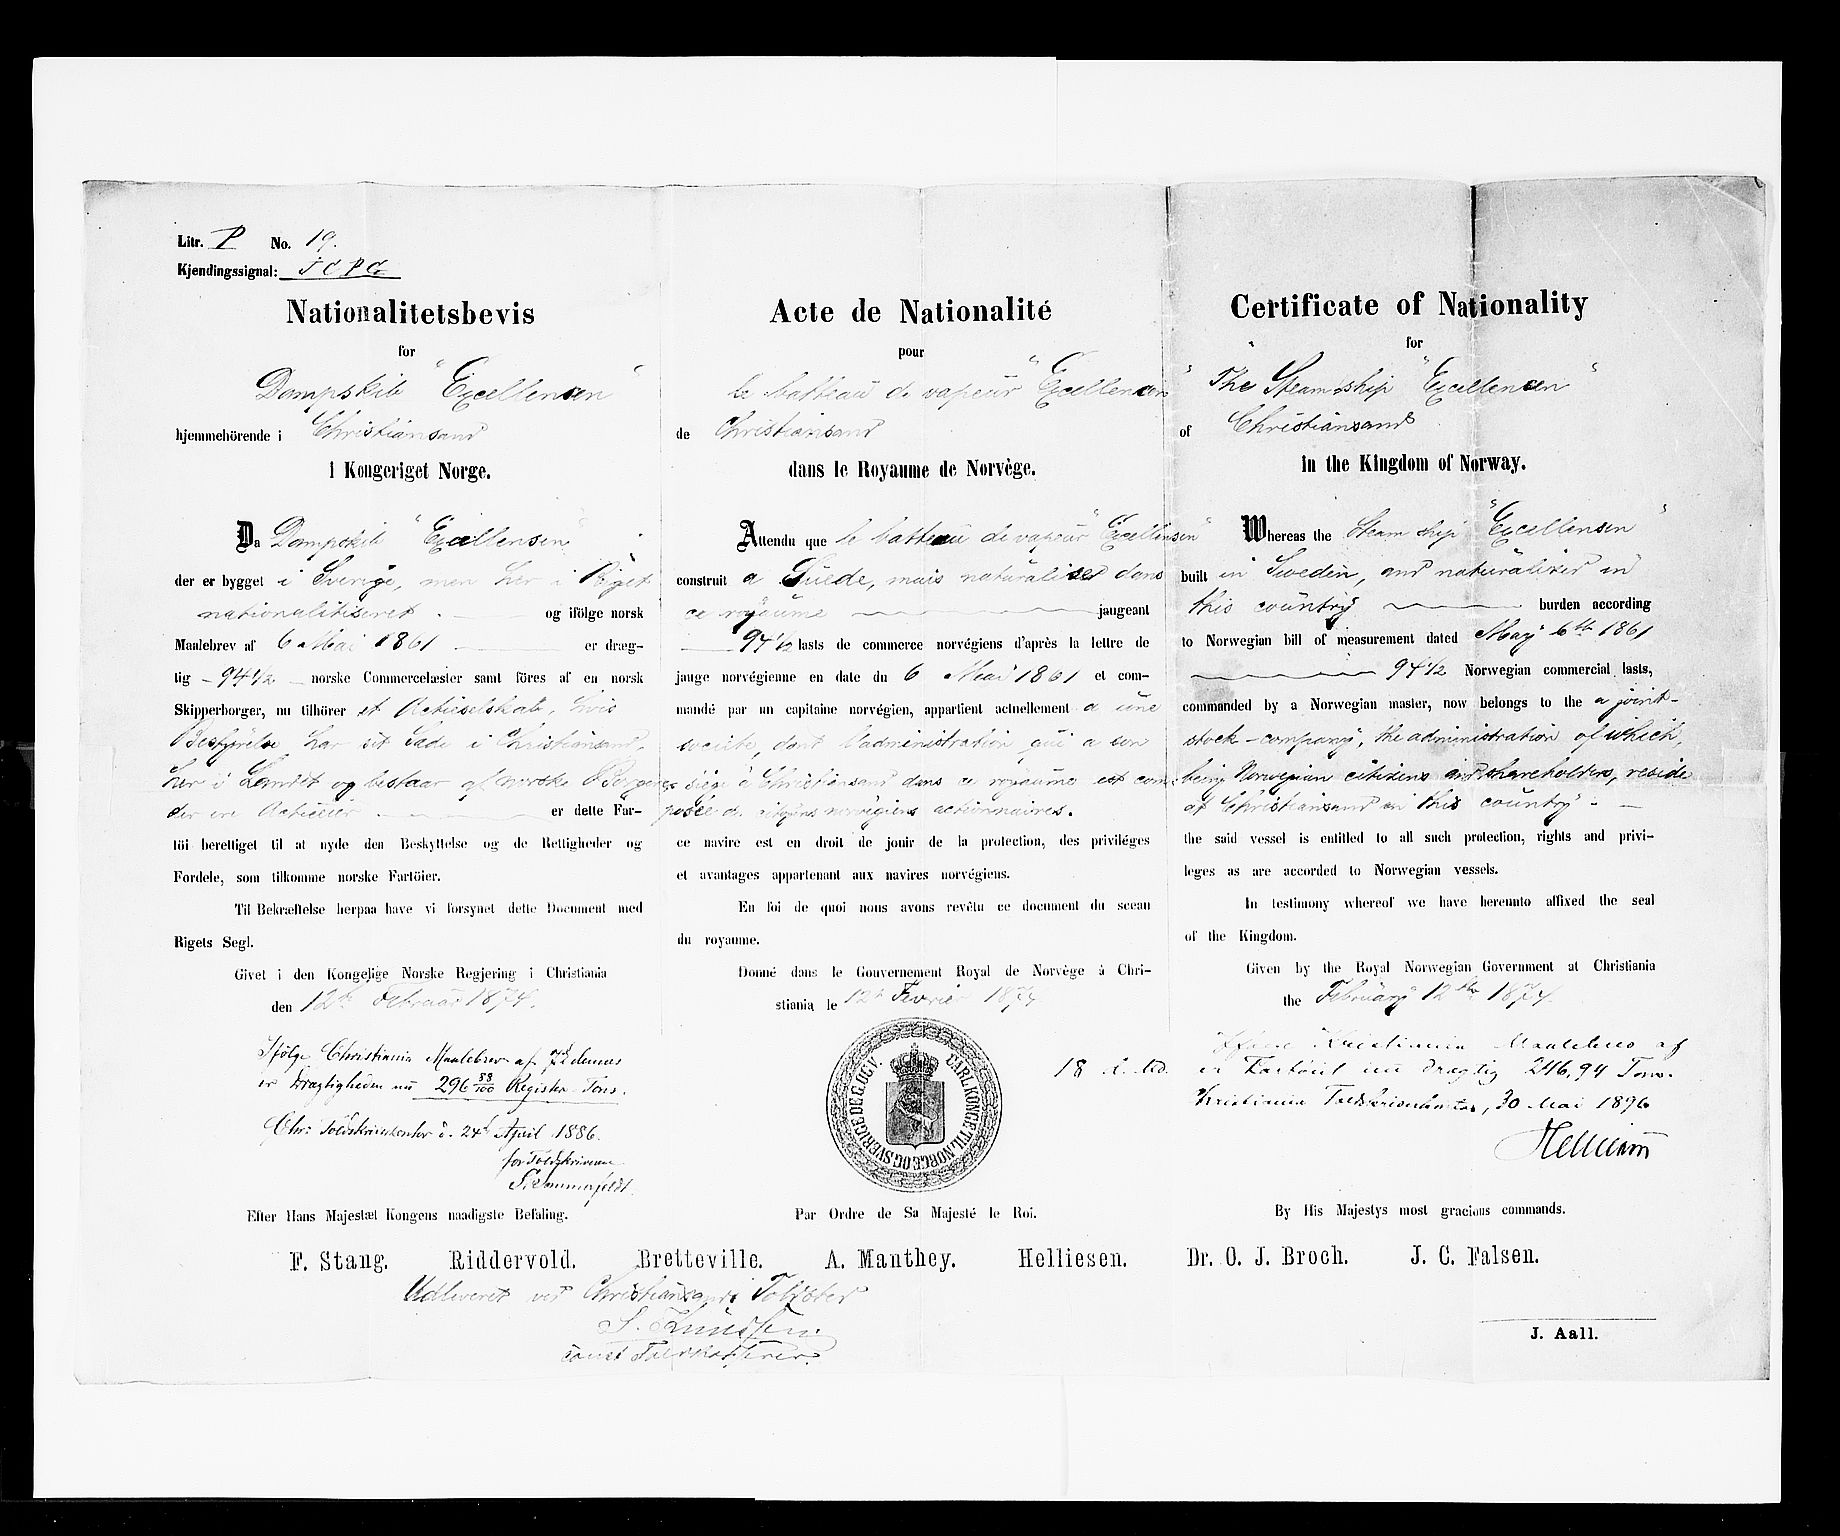 Litr. P No. 19.
Kjendingssignal: J C P G
Nationalitetsbevis
for
Dampskib "Excellensen"
hjemmehörende i Christiansand
i Kongeriget Norge.
Da Dampskib "Excellensen"
der er bygget i Sverige, men her i Riget
nationalitiseret. og ifölge norsk
Maalebrev af 6 Mai 1861 er dræg-
tig - 94 1/2 - norske Commercelæster samt föres af en norsk
Skipperborger, nu tilhörer et Actieselskab, hvis
Bestyrelse har sit Sæde i Christiansand,
her i Landet og bestaar af norske Borgere,
der ere Actieeier er dette Far-
töi berettiget til at nyde den Beskyttelse og de Rettigheder og
Fordele, som tilkomme norske Fartöier.
Til Bekræftelse herpaa have vi forsynet dette Document med
Rigets Segl.
Givet i den Kongelige Norske Regjering i Christiania
den 12te Februar 1874.
Ifölge Christiania Maalebrev af dennes
er Drægtigheden nu 296 88/100 Register Tons.
Chra Toldskriverkontor d. 24d April 1886.
for Toldskriveren
S. Sommerfeldt.
Efter Hans Majestæt Kongens naadigste Befaling.
Acte de Nationalité
pour
le batteau de vapeur "Excellensen"
de Christiansand
dans le Royaume de Norvège.
Attendu que le batteau de vapeur "Excellensen"
construit a Suede, mais naturalised dans
ce royaume jaugeant
94 1/2 lasts de commerce norvégiens d'après la lettre de
jauge norvégienne en date du 6 Mai 1861 et com-
mandé par un capitaine norvégien, appartient actuellement a une
societe, dont l'administration qui a son
siege á Christiansand dans ce royaume est com
posée de citoyens norvégiens actionnaires.
ce navire est en droit de jouir de la protection, des priviléges
et avantages appartenant aux navires norvégiens.
En foi de quoi nous avons revêtu ce document du sceau
du royaume.
Donné dans le Gouvernement Royal de Norvège à Chri-
stiania le 12t Fevrier 1874.
CARL KONGE TIL NORGE OG SVERIGE DE G. OG V.
Par Ordre de Sa Majesté le Roi.
Certificate of Nationality
for
"The Steamship "Excellensen"
of Christiansand
in the Kingdom of Norway.
Whereas the Steam ship "Excellensen"
built in Sweden, and naturalized in
this country burden according
to Norwegian bill of measurement dated May 6th 1861
94 1/2 Norwegian commercial lasts,
commanded by a Norwegian master, now belongs to the a joint-
stock-company, the administration of which,
being Norwegian citizens and shareholders, reside
at Christiansand in this country -
the said vessel is entitled to all such protection, rights and privi-
leges as are accorded to Norwegian vessels.
In testimony whereof we have hereunto affixed the seal
of the Kingdom.
Given by the Royal Norwegian Government at Christiania
the February 12th 1874.
Ifölge Kristiania Maalebrev af
18 d. Md. er Fartöiet nu drægtig 246,94 Tons.
Kristiania Toldskriverkontor, 30 Mai 1896
By His Majestys most gracious commands.
F. Stang. Riddervold. Bretteville. A. Manthey. Helliesen. Dr. O. J. Broch. J. C. Falsen.
Udleveret ved Christiansands Toldsted
S. Knudsen
const Toldkasserer.
J. Aall.